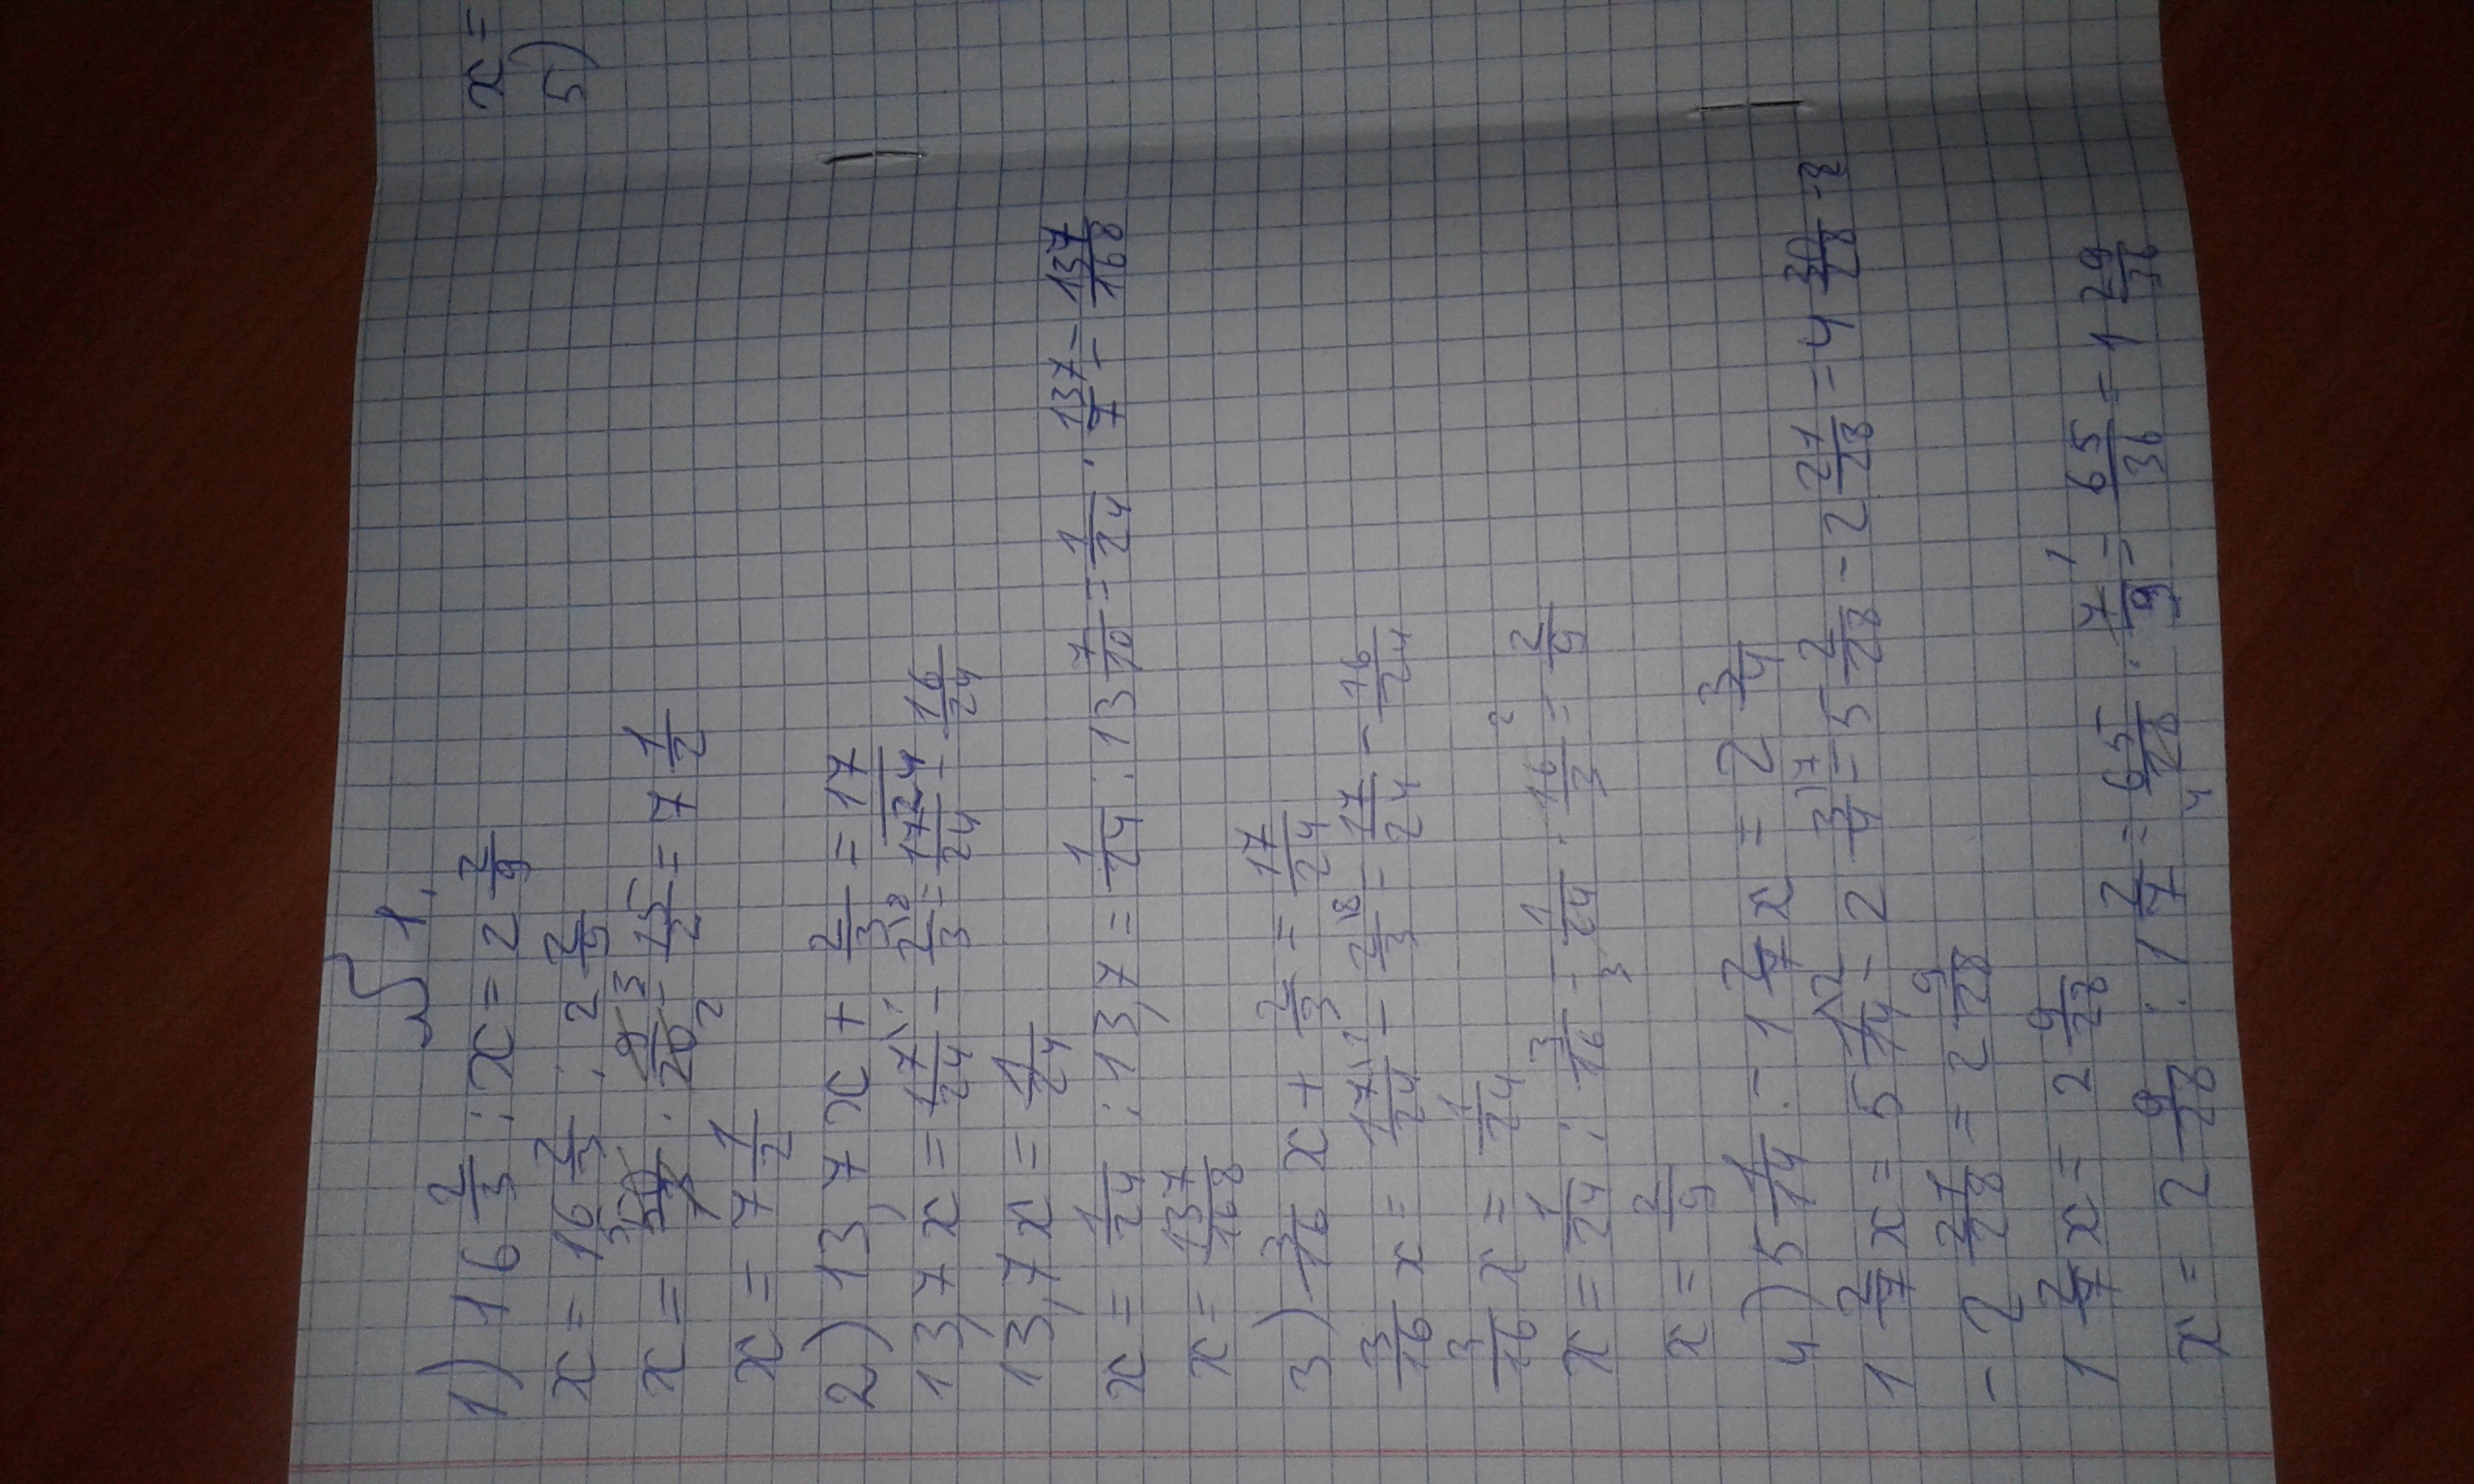 №1.
1) 16 2/3 : x = 2 2/9
x = 16 2/3 : 2 2/9
x = 50/3 · 9/20 = 15/2 = 7 1/2
x = 7 1/2
2) 13,7x + 2/3 = 17
13,7x = 17/24 - 2/3 = 17/24 - 16/24
13,7x = 1/24
x = 1/24 : 13,7 = 1/24 : 13 7/10 = 1/24 · 137/7 = 137/168
x = 137/168
3) 3/16 x + 2/3 = 17/24
3/16 x = 17/24 - 2/3 = 17/24 - 16/24
3/16 x = 1/24
x = 1/24 : 3/16 = 1/24 · 16/3 = 2/9
x = 2/9
4) 5 1/14 - 1 2/7 x = 2 3/4
1 2/7 x = 5 1/14 - 2 3/4 = 5 2/28 - 2 21/28 = 4 30/28 -
- 2 21/28 = 2 9/28
1 2/7 x = 2 9/28
x = 2 9/28 : 1 2/7 = 65/28 · 7/9 = 65/36 = 1 29/36
x =
5)